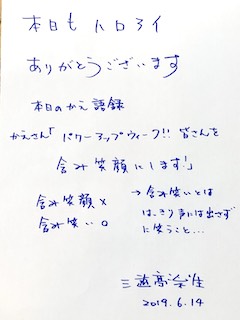 本日も ハロアイ
ありがとうございます
本日のかえ語録
かえさん「パワーアップウィーク!! 皆さんを
含み笑顔にします!」
含み笑顔 ×
含み笑い ○
→ 含み笑いとは
はっきり声には出さず
に笑うこと…
三遊亭 生
2019.6.14